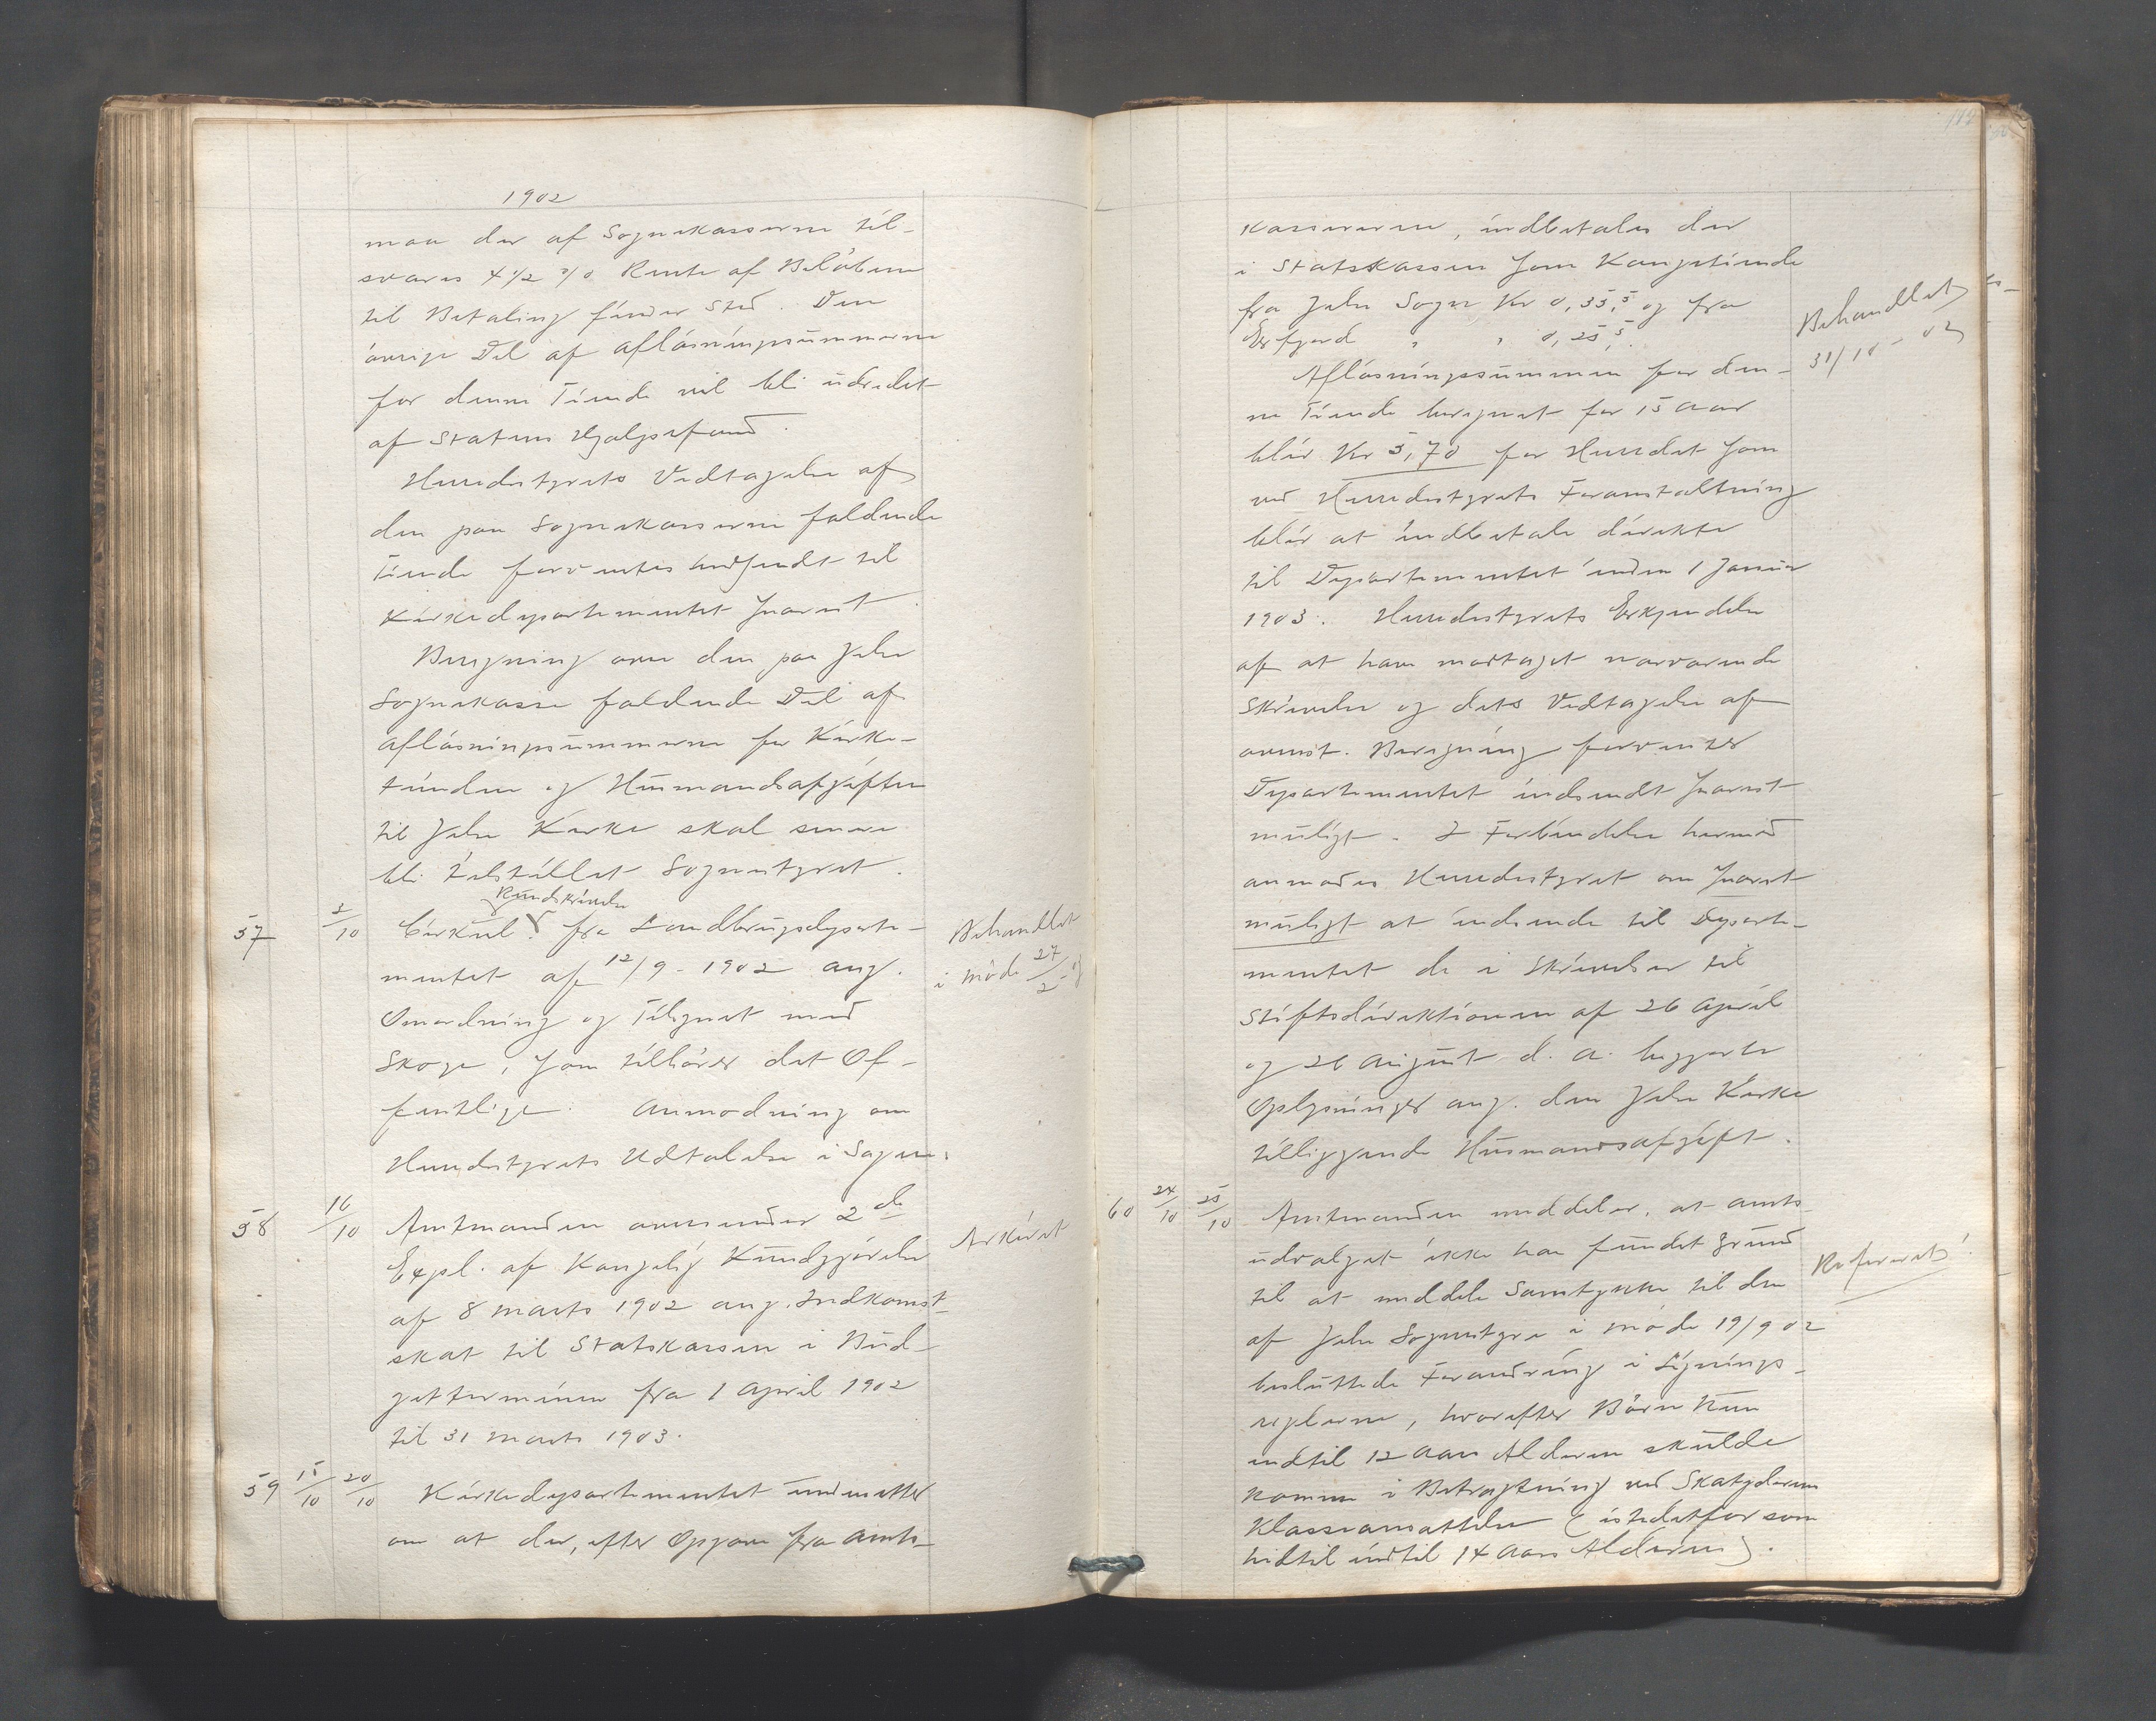 1902
maa der af Sognekasserne til-
svares 4 1/2 % Rente af Beløbene
til Betaling finder Sted. Den
øvrige Del af Afløsningssummerne
for denne Tiende vil bli udredet
af Statens Hjælpefond.
Herredstyrets Vedtagelse af
den paa Sognekasserne faldende
Tiende forventes indsendt til
Kirkedepartementet snarest.
Beregning over den paa Jelse
Sognekasse faldende Del af
Afløsningssummerne for Kirke-
tienden og Husmandsafgiften
til Jelse Kirke skal senere
bli tilstillet Sognestyret.
Rundskrivelse
57 3/10 Cirkul. fra Landbrugsdeparte- Behandlet
mentet af 12/9 - 1902 ang. i møde 27/2
Omordning og Tilsynet med
Skoge, som tilhører det Of-
fentlige. Anmodning om
Herredstyrets Udtalelse i Sagen.
58 16/10 Amtmanden oversender 2de Arkivet
Expl. af Kongelig Kundgjørelse
af 8 marts 1902 ang. Indkomst-
skat til Statskassen i Bud-
getterminen fra 1 April 1902
til 31 marts 1903.
59 15/10 20/10 Kirkedepartementet underretter
om at der, efter Opgave fra Amts-
kassererne, indbetales der
i Statskassen som Kongetiende
fra Jelse Sogn Kr 0,35,5 og fra
Erfjord " " 0,25,5. Behandlet
31/10 - 02
Afløsningssummen for den-
ne Tiende beregnet for 15 Aar
blir Kr 5,70 for Herredet som
ved Herredstyrets Foranstaltning
blir at indbetale direkte
til Departementet inden 1 Januar
1903. Herredstyrets Erkjendelse
af at have modtaget nærværende
Skrivelse og dets Vedtagelse af
ovenst. Beregning forventer
Departementet indsendt snarest
muligt. I Forbindelse hermed
anmodes Herredstyret om snarest
muligt at indsende til Departe-
mentet de i Skrivelser til
Stiftsdirektionen af 26 April
og 21 August d. A. begjærte
Oplysninger ang. den Jelse Kirke
tilliggende Husmandsafgift.
60 24/10 25/10 Amtmanden meddeler, at Amts-
udvalget ikke har fundet Grund Refereret!
til at meddele Samtykke til den
af Jelse Sognestyre i møde 19/9 02
besluttede Forandring i Lignings-
reglerne, hvorefter Børn kun
indtil 12 Aars Alderen skulde
komme i Betragtning ved Skatyderens
Klasseansættelse (istedetfor som
hidtil indtil 14 Aars Alderen).